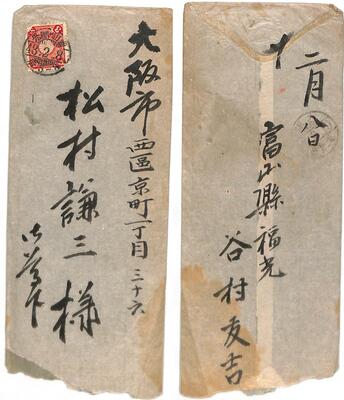 大阪市
西區京町一丁目三十六
松村謙三様
十二月八日
富山縣福光
谷村友吉